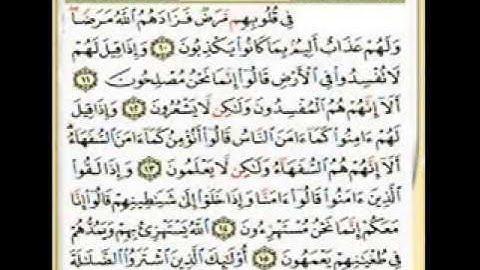 فِي قُلُوبِهِم مَّرَضٌ فَزَادَهُمُ ٱللَّهُ مَرَضًا
وَلَهُمْ عَذَابٌ أَلِيمٌۢ بِمَا كَانُوا۟ يَكْذِبُونَ ١٠ وَإِذَا قِيلَ لَهُمْ
لَا تُفْسِدُوا۟ فِي ٱلْأَرْضِ قَالُوٓا۟ إِنَّمَا نَحْنُ مُصْلِحُونَ ١١
أَلَآ إِنَّهُمْ هُمُ ٱلْمُفْسِدُونَ وَلَٰكِن لَّا يَشْعُرُونَ ١٢ وَإِذَا قِيلَ
لَهُمْ ءَامِنُوا۟ كَمَآ ءَامَنَ ٱلنَّاسُ قَالُوٓا۟ أَنُؤْمِنُ كَمَآ ءَامَنَ ٱلسُّفَهَآءُ
أَلَآ إِنَّهُمْ هُمُ ٱلسُّفَهَآءُ وَلَٰكِن لَّا يَعْلَمُونَ ١٣ وَإِذَا لَقُوا۟
ٱلَّذِينَ ءَامَنُوا۟ قَالُوٓا۟ ءَامَنَّا وَإِذَا خَلَوْا۟ إِلَىٰ شَيَٰطِينِهِمْ قَالُوٓا۟ إِنَّا
مَعَكُمْ إِنَّمَا نَحْنُ مُسْتَهْزِءُونَ ١٤ ٱللَّهُ يَسْتَهْزِئُ بِهِمْ وَيَمُدُّهُمْ
فِي طُغْيَٰنِهِمْ يَعْمَهُونَ ١٥ أُو۟لَٰٓئِكَ ٱلَّذِينَ ٱشْتَرَوُا۟ ٱلضَّلَٰلَةَ